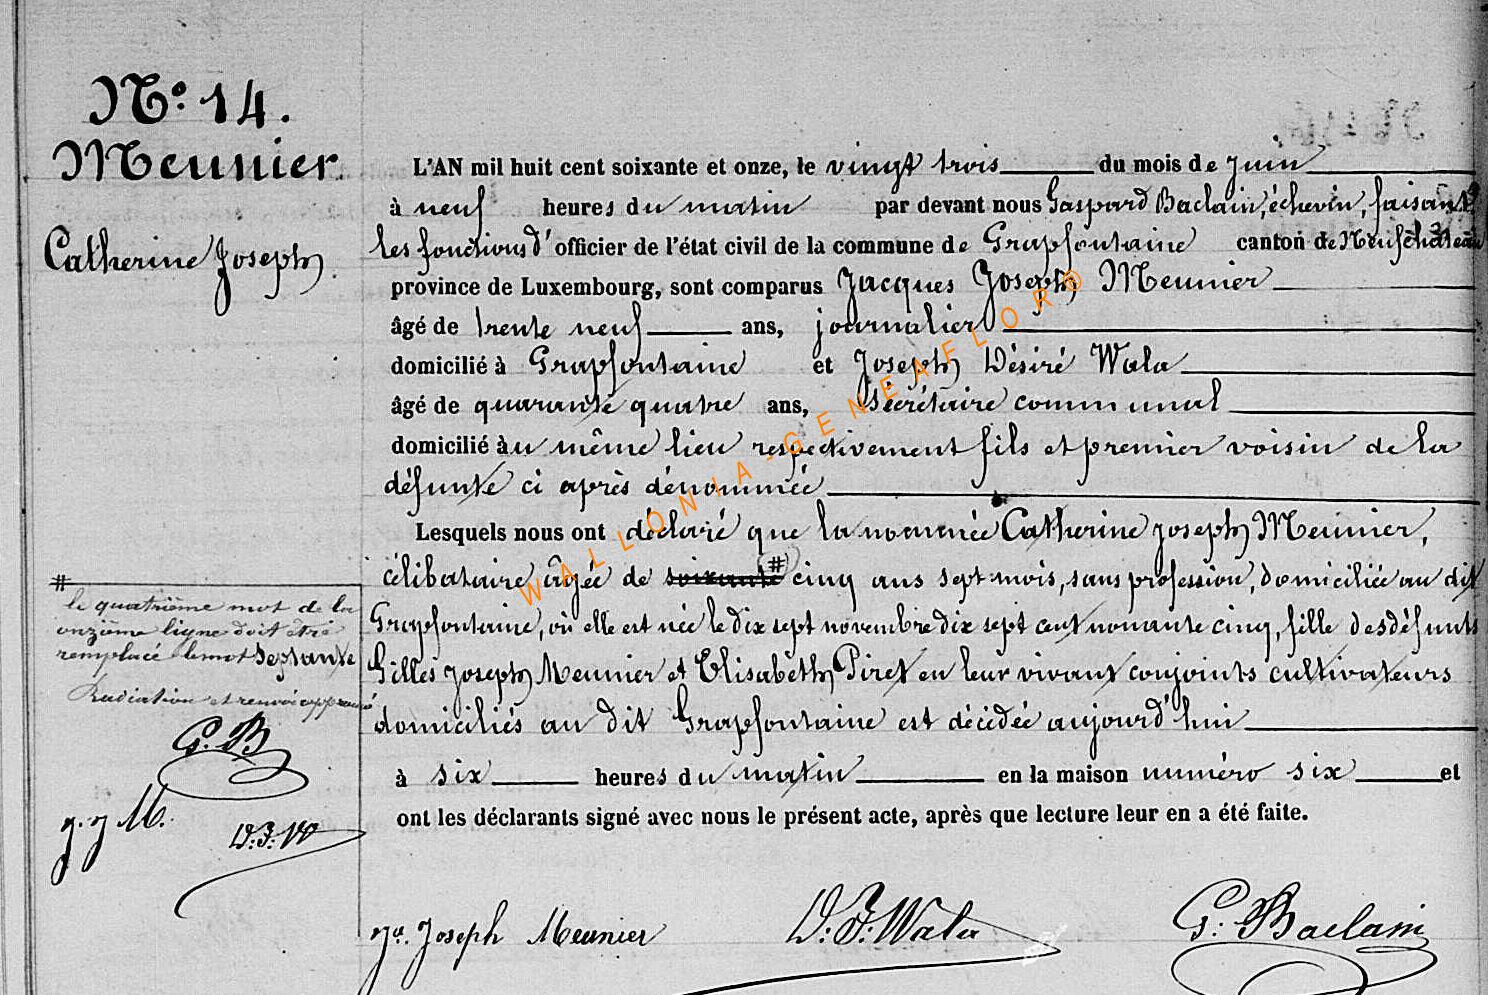 N.º 14.
Meunier
Catherine Joseph.
L'AN mil huit cent soixante et onze, le vingt trois du mois de Juin
à neuf heures du matin par devant nous Gaspard Baclain, échevin, faisant
les fonctions d'officier de l'état civil de la commune de Grapfontaine canton de Neufchâteau
province de Luxembourg, sont comparus Jacques Joseph Meunier
âgé de trente neuf ans, journalier
domicilié à Grapfontaine et Joseph Désiré Wala
âgé de quarante quatre ans, Secrétaire communal
domicilié au même lieu respectivement fils et premier voisin de la
défunte ci après dénommée
Lesquels nous ont déclaré que la nommée Catherine Joseph Meunier,
célibataire âgée de soixante (#) cinq ans sept mois, sans profession, domiciliée au dit
Grapfontaine, où elle est née le dix sept novembre dix sept cent nonante cinq, fille des défunts
Gilles Joseph Meunier et Elisabeth Piret en leur vivant conjoints cultivateurs
domiciliés au dit Grapfontaine est décédée aujourd'hui
à six heures du matin en la maison numéro six et
ont les déclarants signé avec nous le présent acte, après que lecture leur en a été faite.
#
le quatrième mot de la
onzième ligne doit être
remplacé le mot septante
Radiation et renvoi approuvé
G. B
J. J M.
D. J. W
Ja. Joseph Meunier D. J. Wala G. Baclain
WALLONIA-GENEAFLOR®